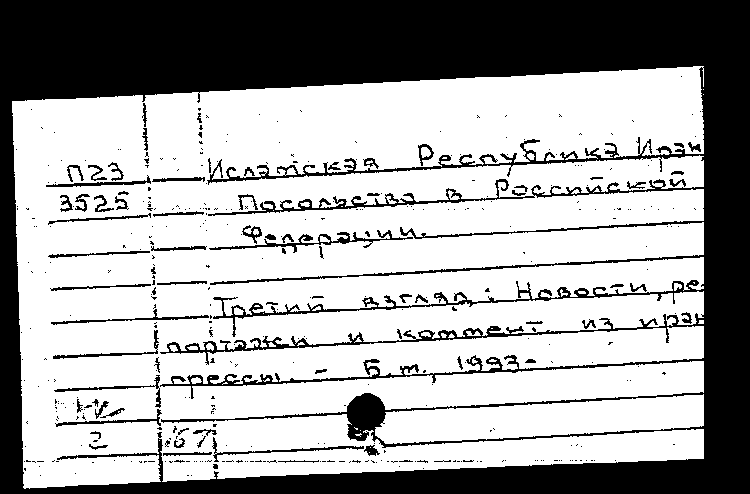 П23 Исламская Республика Иран
3525 Посольство в Российской
Федерации.
Третий взгляд: Новости, ре-
портажи и коммент. из иран
прессы. - Б.м., 1993-
2 167